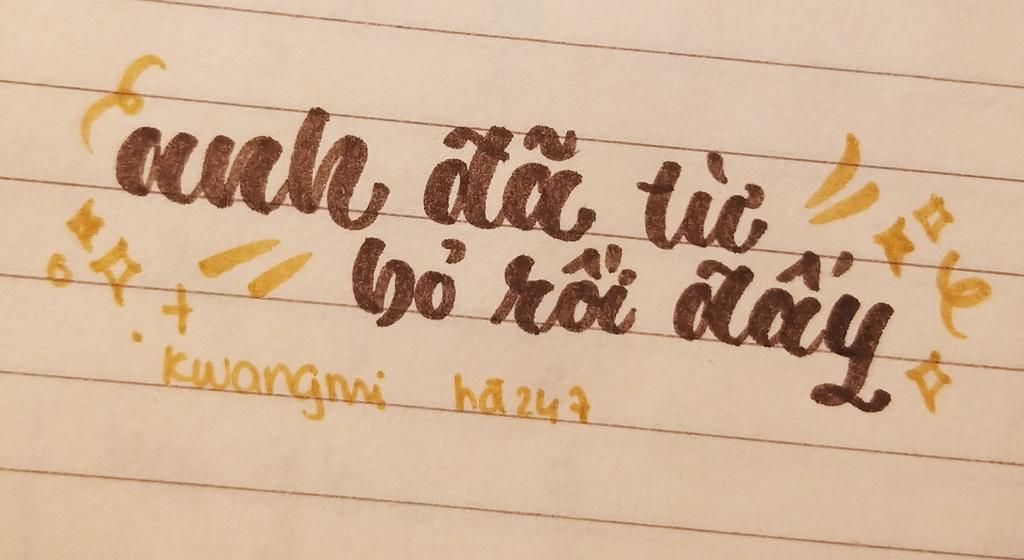 anh đã từ
bỏ rồi đấy
kwangmi hđ247